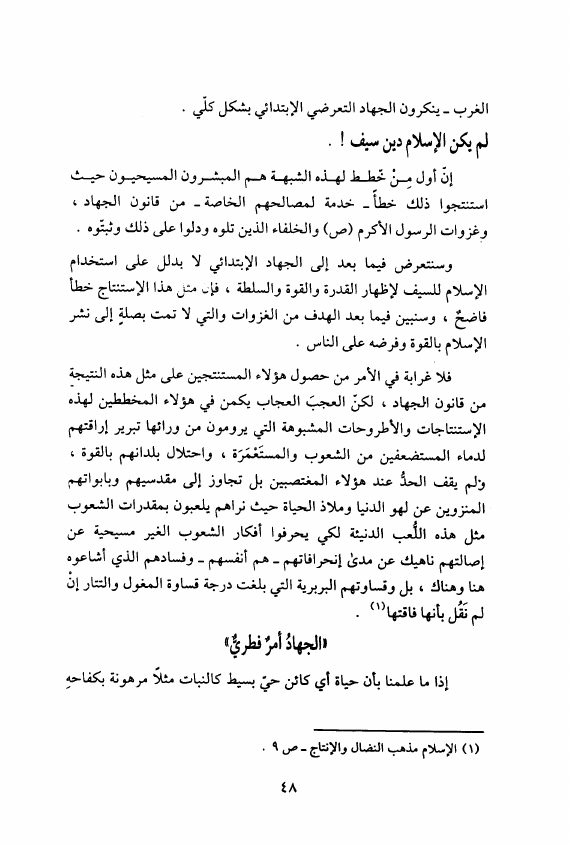 الغرب ـ ينكرون الجهاد التعرضي الإبتدائي بشكل كلّي .
لم يكن الإسلام دين سيف ! .
إنّ أول مِنْ خطط لهذه الشبهة هم المبشرون المسيحيون حيث
استنتجوا ذلك خطأً ـ خدمة لمصالحهم الخاصة ـ من قانون الجهاد ،
وغزوات الرسول الأكرم (ص) والخلفاء الذين تلوه ودلوا على ذلك وثبتّوه .
وسنتعرض فيما بعد إلى الجهاد الإبتدائي لا بدلل على استخدام
الإسلام للسيف لإظهار القدرة والقوة والسلطة ، فإن مثل هذا الإستنتاج خطأ
فاضحٌ ، وسنبين فيما بعد الهدف من الغزوات والتي لا تمت بصلةٍ إلى نشر
الإسلام بالقوة وفرضه على الناس .
فلا غرابة في الأمر من حصول هؤلاء المستنتجين على مثل هذه النتيجة
من قانون الجهاد ، لكنّ العجبَ العجاب يكمن في هؤلاء المخططين لهذه
الإستنتاجات والأطروحات المشبوهة التي يرومون من ورائها تبرير إراقتهم
لدماء المستضعفين من الشعوب والمستَعْمَرَة ، واحتلال بلدانهم بالقوة ،
ولم يقف الحدُّ عند هؤلاء المغتصبين بل تجاوز إلى مقدسيهم وباباواتهم
المنزوين عن لهو الدنيا وملاذ الحياة حيث نراهم يلعبون بمقدرات الشعوب
مثل هذه اللُّعب الدنيئة لكي يحرفوا أفكار الشعوب الغير مسيحية عن
إصالتهم ناهيك عن مدىٰ إنحرافاتهم ـ هم أنفسهم ـ وفسادهم الذي أشاعوه
هنا وهناك ، بل وقساوتهم البربرية التي بلغت درجة قساوة المغول والتتار إنْ
لم نَقُل بأنها فاقتها(١) .
«الجهادُ أمرٌ فطريٌّ»
إذا ما علمنا بأن حياة أي كائن حيّ بسيط كالنبات مثلاً مرهونة بكفاحهِ
(١) الإسلام مذهب النضال والإنتاج ـ ص ٩ .
٤٨